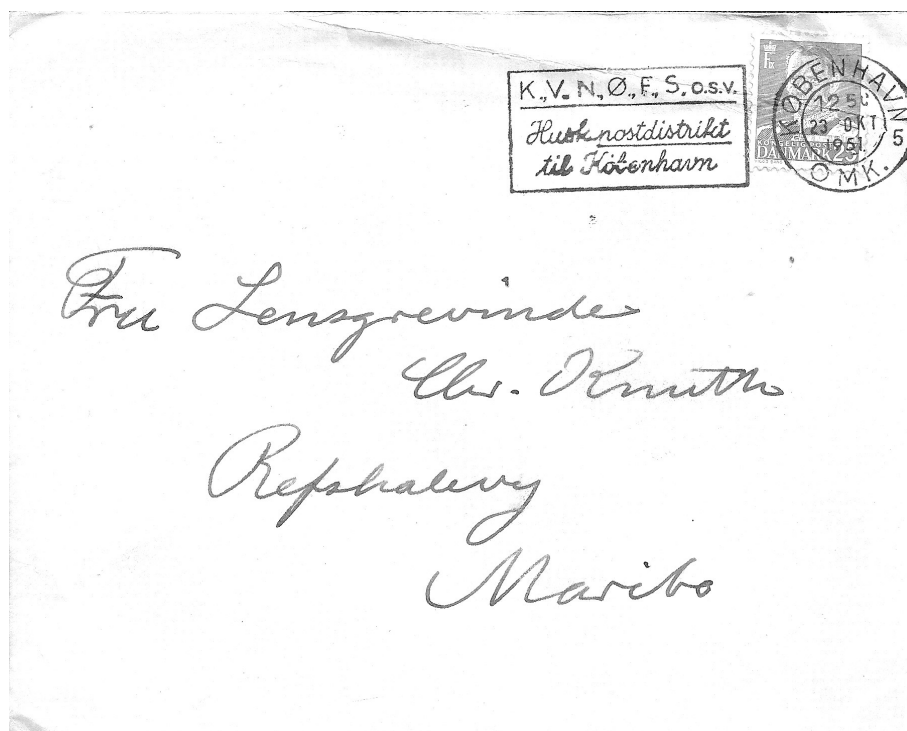 K., V., N., Ø., F., S. o.s.v.
Husk postdistrikt
til København
KØBENHAVN 5
OMK.
12 50
23 OKT
1951
DANMARK 25
Fru Lensgrevinde
Chr. Knuth
Refshalevej
Maribo